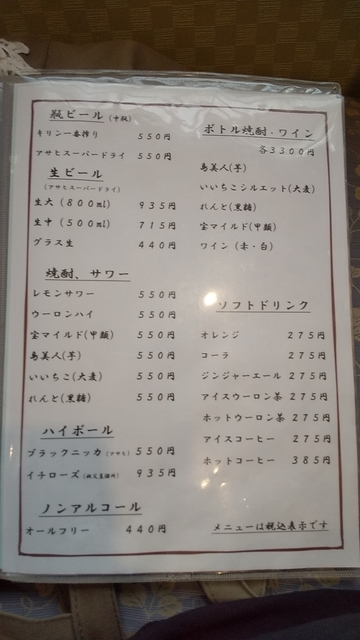 瓶ビール (中瓶)
キリン一番搾り 550円
アサヒスーパードライ 550円
生ビール
(アサヒスーパードライ)
生大 (800ml) 935円
生中 (500ml) 715円
グラス生 440円
焼酎、サワー
レモンサワー 550円
ウーロンハイ 550円
宝マイルド(甲類) 550円
島美人(芋) 550円
いいちこ(大麦) 550円
れんと(黒糖) 550円
ハイボール
ブラックニッカ(アサヒ) 550円
イチローズ(秩父蒸留所) 935円
ノンアルコール
オールフリー 440円
ボトル焼酎・ワイン
各3300円
島美人(芋)
いいちこシルエット(大麦)
れんと(黒糖)
宝マイルド(甲類)
ワイン (赤・白)
ソフトドリンク
オレンジ 275円
コーラ 275円
ジンジャーエール 275円
アイスウーロン茶 275円
ホットウーロン茶 275円
アイスコーヒー 275円
ホットコーヒー 385円
メニューは税込表示です